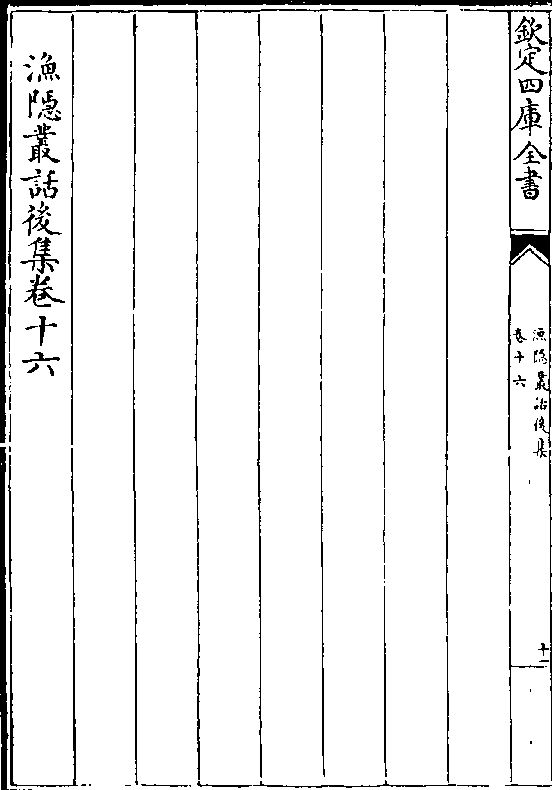 欽定四庫全書
漁隱叢話後集
卷十六
十一
漁隱叢話後集卷十六